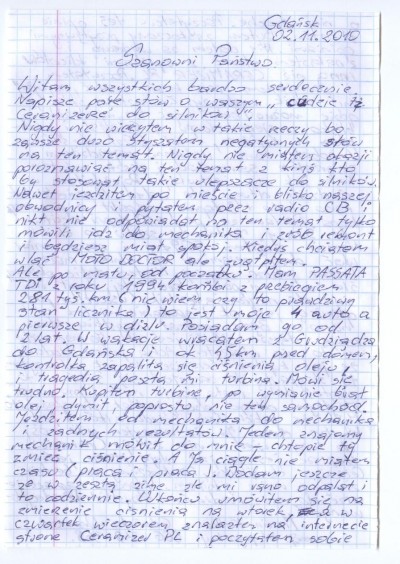 Gdańsk
02.11.2010
Szanowni Państwo
Witam wszystkich bardzo serdecznie
Napisze parę słów o waszym „cudzie
Ceramizerze do silników".
Nigdy nie wierzyłem w takie rzeczy bo
zawsze dużo słyszałem negatywnych słów
na ten temat. Nigdy nie miałem okazji
porozmawiać na ten temat z kimś kto
by stosował takie ulepszacze do silników.
Nawet jeździłem po mieście i blisko naszej
obwodnicy i pytałem przez radio CB
nikt nie odpowiadał na ten temat tylko
mówili idz do mechanika i zrób remont
i będziesz miał spokój. Kiedyś chciałem
wlać MOTO DOCTOR ale zwątpiłem.
Ale po mału, od początku. Mam PASSATA
TDi z roku 1994 kombi z przebiegiem
281 tyś. km (nie wiem czy to prawdziwy
stan licznika) to jest moje 4 auto a
pierwsze w dizlu. Posiadam go od
2 lat. W wakacje wracałem z Grudziądza
do Gdańska i ok 45 km przed domem,
kontrolka zapaliła się ciśnienia oleju,
i tragedia poszła mi turbina. Mówi się
trudno. Kupiłem turbinę, po wymianie brał
olej, dymił, poprostu nie ten samochód.
Jeździłem od mechanika do mechanika
i żadnych rezultatów. Jeden znajomy
mechanik mówił do mnie - chłopie ty
zmierz ciśnienie. A ja ciągle nie miałem
czasu (praca i praca). Dodam jeszcze
że w zeszłą zimę źle mi rano odpalał i
to codziennie. Wkońcu umówiłem się na
zmierzenie ciśnienia na wtorek, w
czwartek wieczorem, znalazłem na internecie
stronę Ceramizer PL i poczytałem sobie